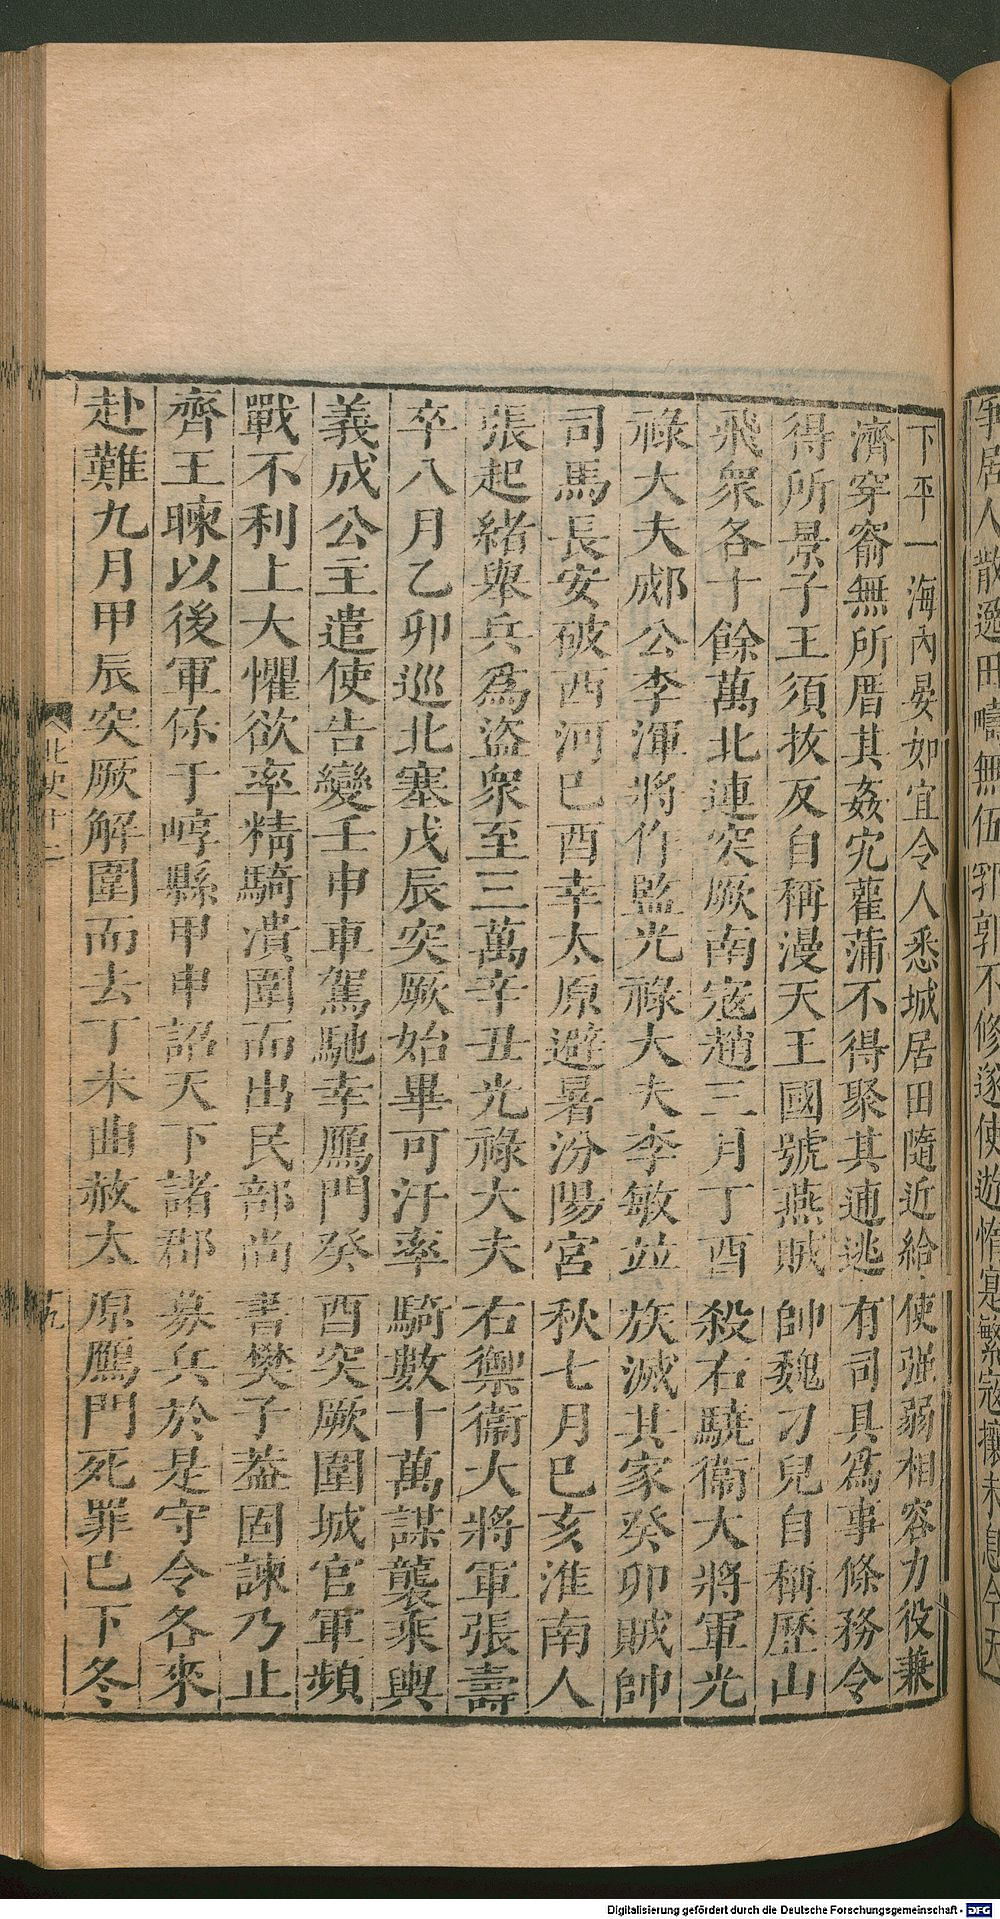 宇居人散逸田疇無伍郛郭不修遂使遊惰寔繁寇攘未息今天
下平一海內晏如宜令人悉城居田隨近給使強弱相容力役兼
濟穿窬無所厝其姦宄雚蒲不得聚其逋逃有司具爲事條務令
得所景子王須拔反自稱漫天王國號燕賊帥魏刁兒自稱歷山
飛衆各十餘萬北連突厥南寇趙三月丁酉殺右驍衞大將軍光
祿大夫郕公李渾將作監光祿大夫李敏並族滅其家癸卯賊帥
司馬長安破西河巳酉幸太原避暑汾陽宮秋七月巳亥淮南人
張起緒舉兵爲盜衆至三萬辛丑光祿大夫右禦衞大將軍張壽
卒八月乙卯巡北塞戊辰突厥始畢可汗率騎數十萬謀襲乘輿
義成公主遣使告變壬申車駕馳幸鴈門癸酉突厥圍城官軍頻
戰不利上大懼欲率精騎潰圍而出民部尚書樊子葢固諫乃止
齊王暕以後軍保于崞縣甲申詔天下諸郡募兵於是守令各來
赴難九月甲辰突厥解圍而去丁未曲赦太原鴈門死罪巳下冬
北史十二
十九
Digitalisierung gefördert durch die Deutsche Forschungsgemeinschaft - DFG